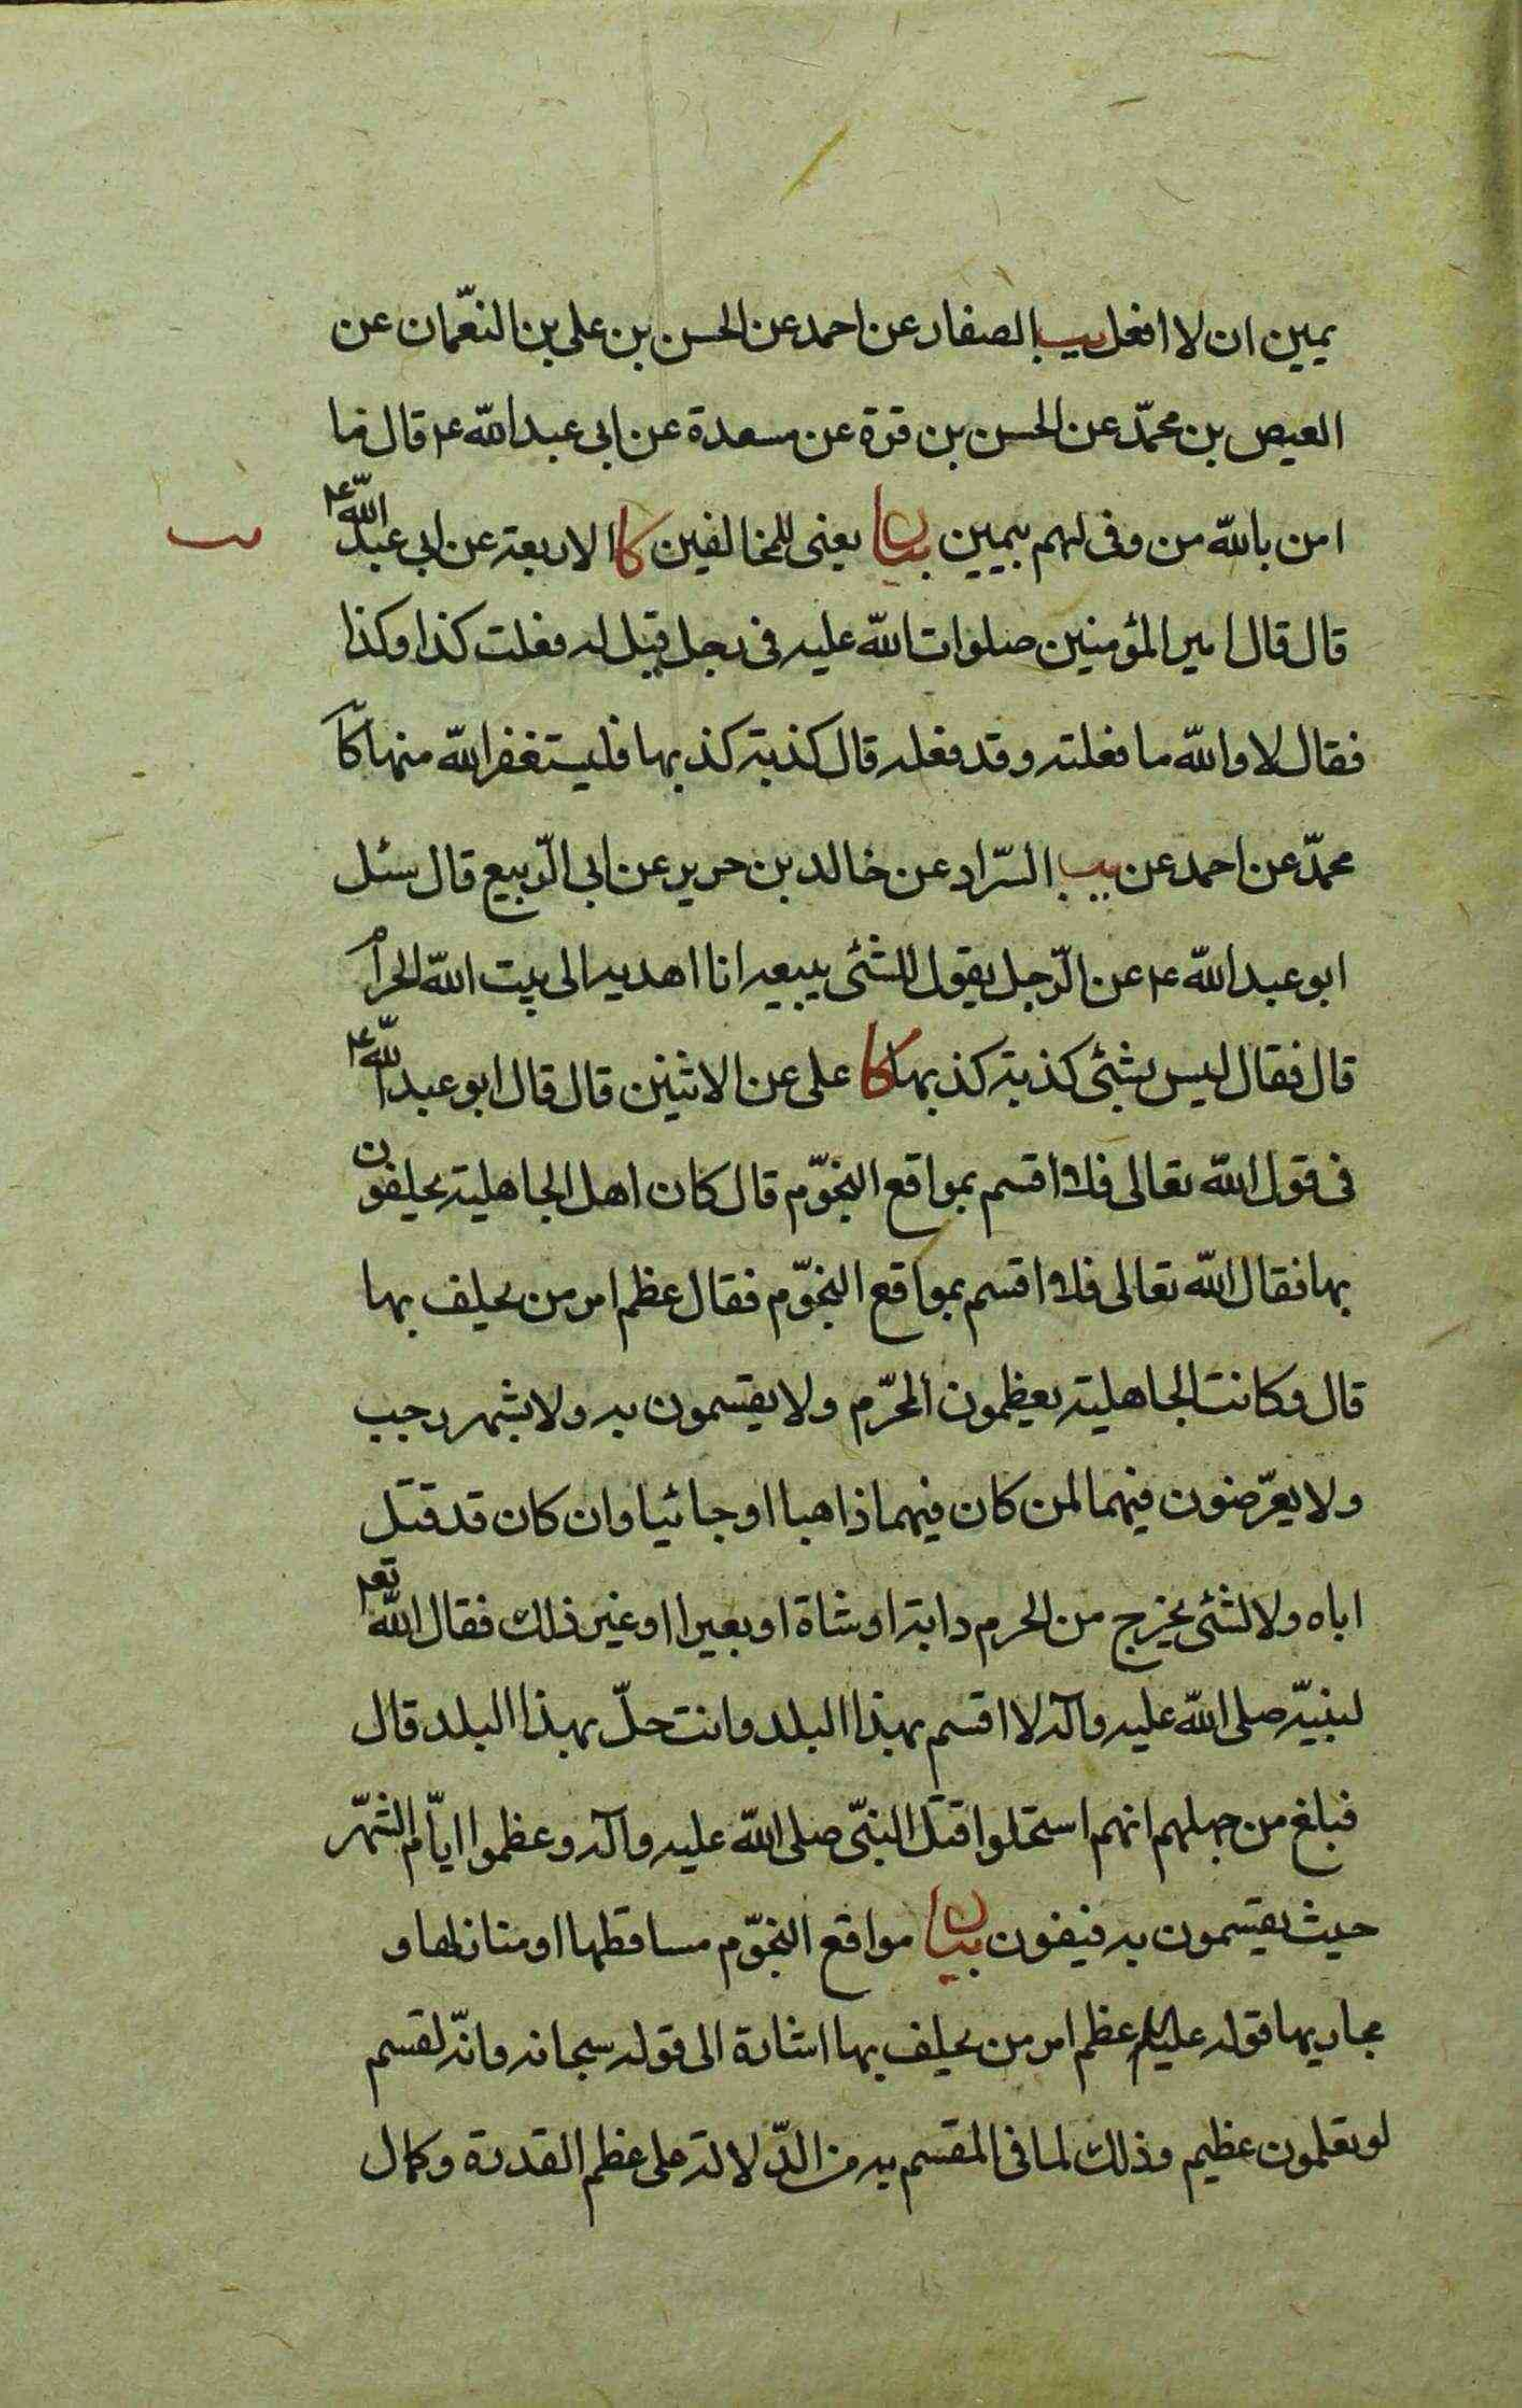 يمين ان لا افعل يب الصفار عن احمد عن الحسن بن على بن النعّمان عن
العيص بن محمّد عن الحسن بن قرة عن مسعدة عن ابى عبد الله ع قال ما
امن بالله من وفى لهم بيمين بيان يعنى للمخالفين كا الاربعة عن ابى عبد الله ع
قال قال امير المؤمنين صلوات الله عليه فى رجل قيل له فعلت كذا وكذا
فقال لا والله ما فعلته وقد فعله قال كذبة كذبها فليستغفر الله منها كا
محمّد عن احمد عن يب السّراد عن خالد بن حرير عن ابى الرّبيع قال سئل
ابو عبد الله ع عن الرّجل يقول للشئى يبيعه انا اهديه الى بيت الله الحرام
قال فقال ليس بشئى كذبة كذبها كا على عن الاثنين قال قال ابو عبد الله ع
فى قول الله تعالى فلا اقسم بمواقع النجوّم قال كان اهل الجاهلية يحلفون
بها فقال الله تعالى فلا اقسم بمواقع النجوّم فقال عظم امر من يحلف بها
قال وكانت الجاهلية يعظمون المحرّم ولا يقسمون به ولا بشهر رجب
ولا يعرّضون فيهما لمن كان فيهما ذاهبا او جائيا وان كان قد قتل
اباه ولا لشئى يخرج من الحرم دابة او شاة او بعيرا او غير ذلك فقال الله تعم
لنبيّه صلى الله عليه وآله لا اقسم بهذا البلد وانت حلّ بهذا البلد قال
فبلغ من جهلهم انهم استحلوا قتل النبىّ صلى الله عليه وآله وعظموا ايّام الشهّر
حيث يقسمون به فيفون بيان مواقع النجوّم مساقطها او منازلها و
مجاريها قوله عليه السلم عظم امر من يحلف بها اشارة الى قوله سبحانه وانّه لقسم
لو تعلمون عظيم وذلك لما فى المقسم به من الدّلالة على عظم القدرة وكمال